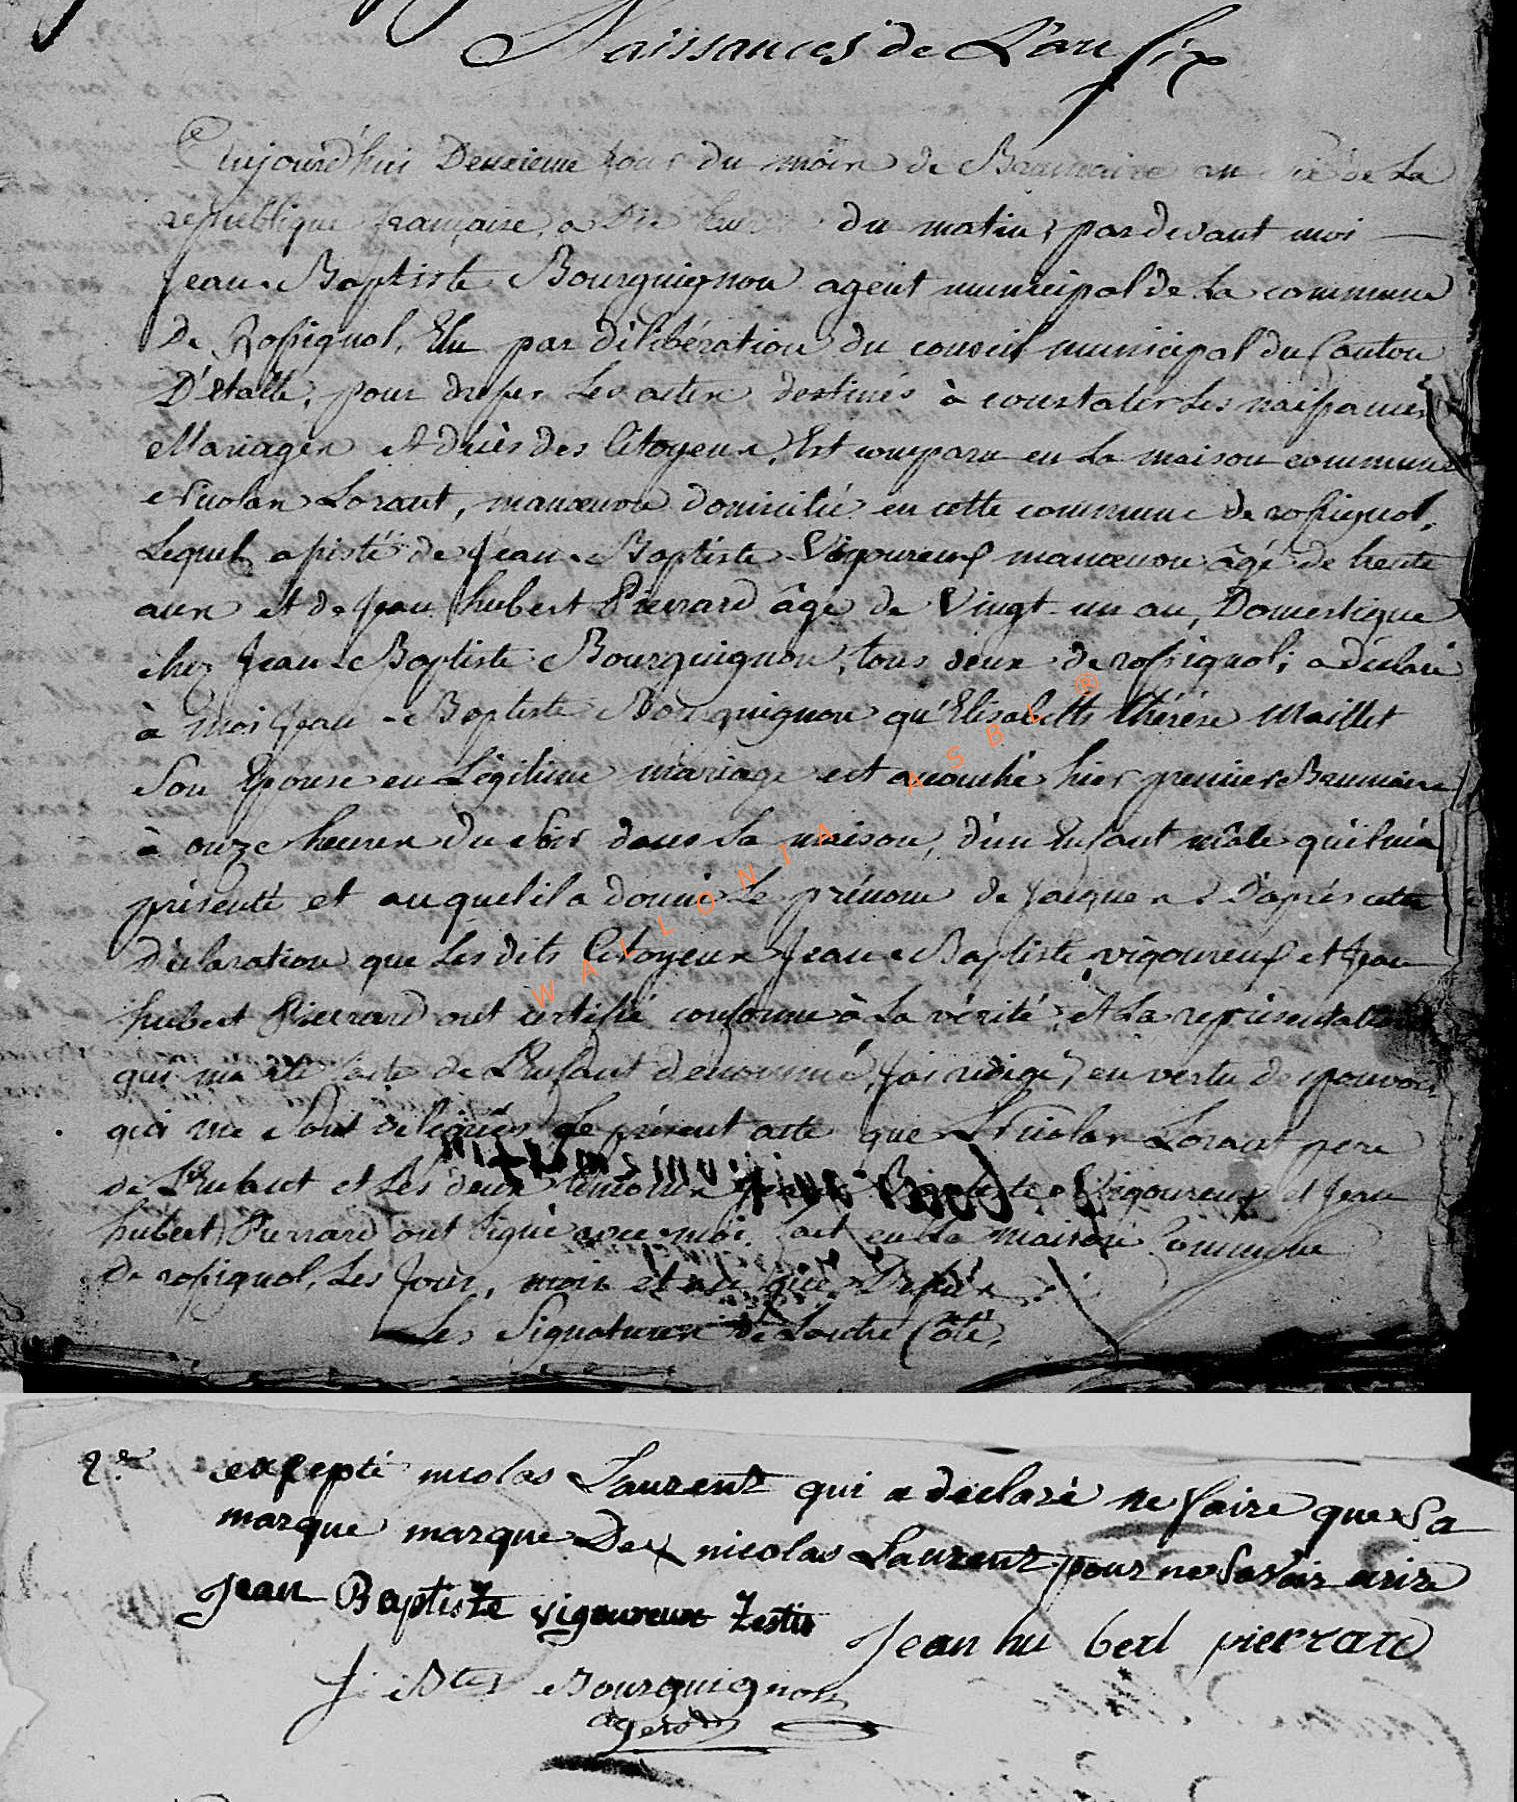 Naissances de L'an six
Aujourd'hui Deuxieme jour du mois de Brumaire an six de La
republique française, a Dix heures du matin, pardevant moi
Jean-Baptiste Bourguignon agent municipal de La commune
De Rossignol, Elu par délibération du conseil municipal du Canton
D'étalle, pour dresser Les actes destinés à constater Les naissances
Mariages et décès des Citoyens, Est comparu en La maison commune
Nicolas Lorant, manœuvre domicilié en cette commune de rossignol,
Lequel assisté de Jean-Baptiste Vigoureux manœuvre âgé de trente
ans et de Jean hubert Pierrard âgé de Vingt-un an, Domestique
chez Jean-Baptiste Bourguignon, tous deux de rossignol; a déclaré
à moi Jean-Baptiste Bourguignon qu'Elisabeth thérèse Maillet
Son Epouse en Légitime mariage est accouché hier premier Brumaire
à onze heures du soir dans sa maison, d'un Enfant mâle qu'il m'a
présenté et auquel il a donné Le prénom de Jacques. D'après cette
Déclaration que Les dits Citoyens Jean-Baptiste vigoureux et Jean
hubert Pierrard ont certifié conforme à La vérité, et La représentation
qui m'a été faite de L'Enfant denommé, j'ai rédigé, en vertu des pouvoirs
qui me sont délégués Le présent acte que Nicolas Lorant pere
de L'Enfant et Les deux témoins Jean Baptiste Vigoureux et Jean
hubert Pierrard ont signé avec moi. fait en La maison Commune
De rossignol, Les Jour, mois et an que Dessus.
Les Signatures de L'autre Côté.
WALLONIA ASBL ®
excepté nicolas Laurent qui a déclaré ne faire que Sa
marque marque De x nicolas Laurent pour ne Savoir ecrire
Jean Baptiste vigoureux Testis
Jean hu bert pierrard
J. Bte Bourguignon
agent